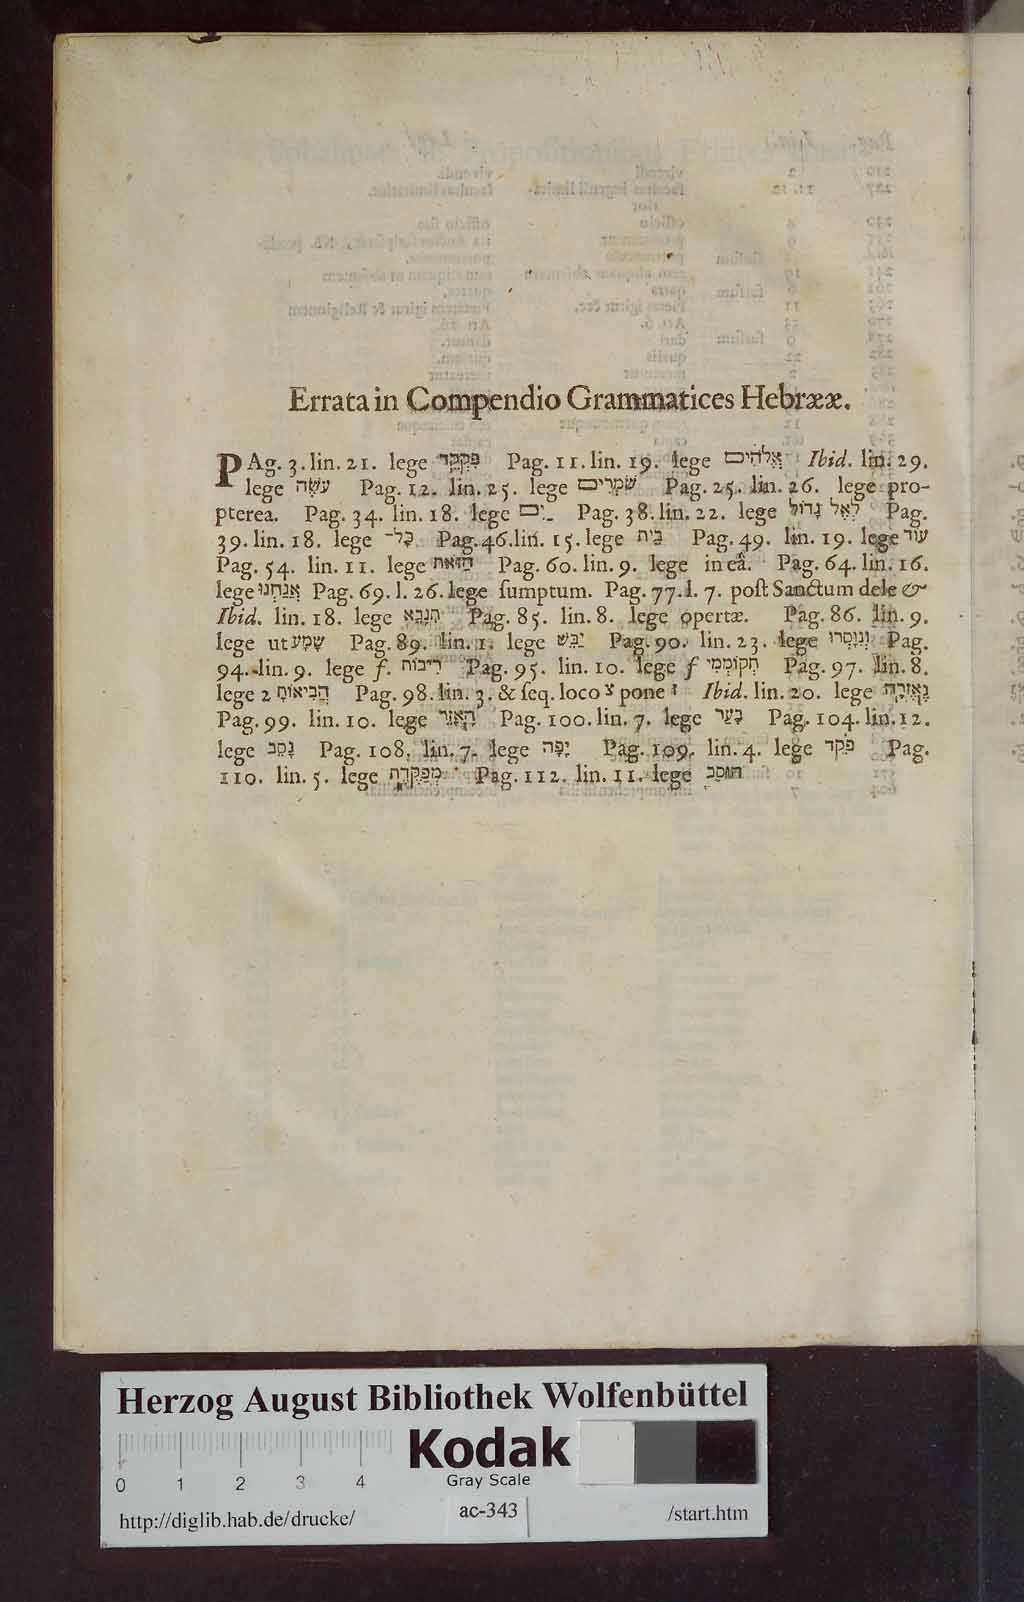 Errata in Compendio Grammatices Hebrææ.
PAg. 3. lin. 21. lege פְּקַדְקַד Pag. 11. lin. 19. lege אֱלֹהִים Ibid. lin. 29.
lege עֹשֶׂה Pag. 12. lin. 25. lege שֹׁמְרִים Pag. 25. lin. 26. lege pro-
pterea. Pag. 34. lin. 18. lege ־ִים Pag. 38. lin. 22. lege לְאֵל גָּדוֹל Pag.
39. lin. 18. lege כָּל־ Pag. 46. lin. 15. lege בַּיִת Pag. 49. lin. 19. lege עוֹד
Pag. 54. lin. 11. lege הַזֹּאת Pag. 60. lin. 9. lege in eâ. Pag. 64. lin. 16.
lege אֲנַחְנוּ Pag. 69. l. 26. lege ſumptum. Pag. 77. l. 7. poſt Sanctum dele &
Ibid. lin. 18. lege הִנָּבֵא Pag. 85. lin. 8. lege opertæ. Pag. 86. lin. 9.
lege ut שְׁמַע Pag. 89. lin. 1. lege יִבַּשׁ Pag. 90. lin. 23. lege וְנִוַּסְּרוּ Pag.
94. lin. 9. lege f. רִיבוֹת Pag. 95. lin. 10. lege f תְּקוֹמְמִי Pag. 97. lin. 8.
lege 2 הֲבִיאוֹתָ Pag. 98. lin. 3. & ſeq. loco ץ pone ז Ibid. lin. 20. lege נֶאְזָרָה
Pag. 99. lin. 10. lege הָאֱזַר Pag. 100. lin. 7. lege בָּעַר Pag. 104. lin. 12.
lege נָסַב Pag. 108. lin. 7. lege יָפֶה Pag. 109. lin. 4. lege פֹּקֵד Pag.
110. lin. 5. lege מְפַקֶּדֶת Pag. 112. lin. 11. lege הוּסַב
Herzog August Bibliothek Wolfenbüttel
Kodak
Gray Scale
0 1 2 3 4
http://diglib.hab.de/drucke/ ac-343 /start.htm